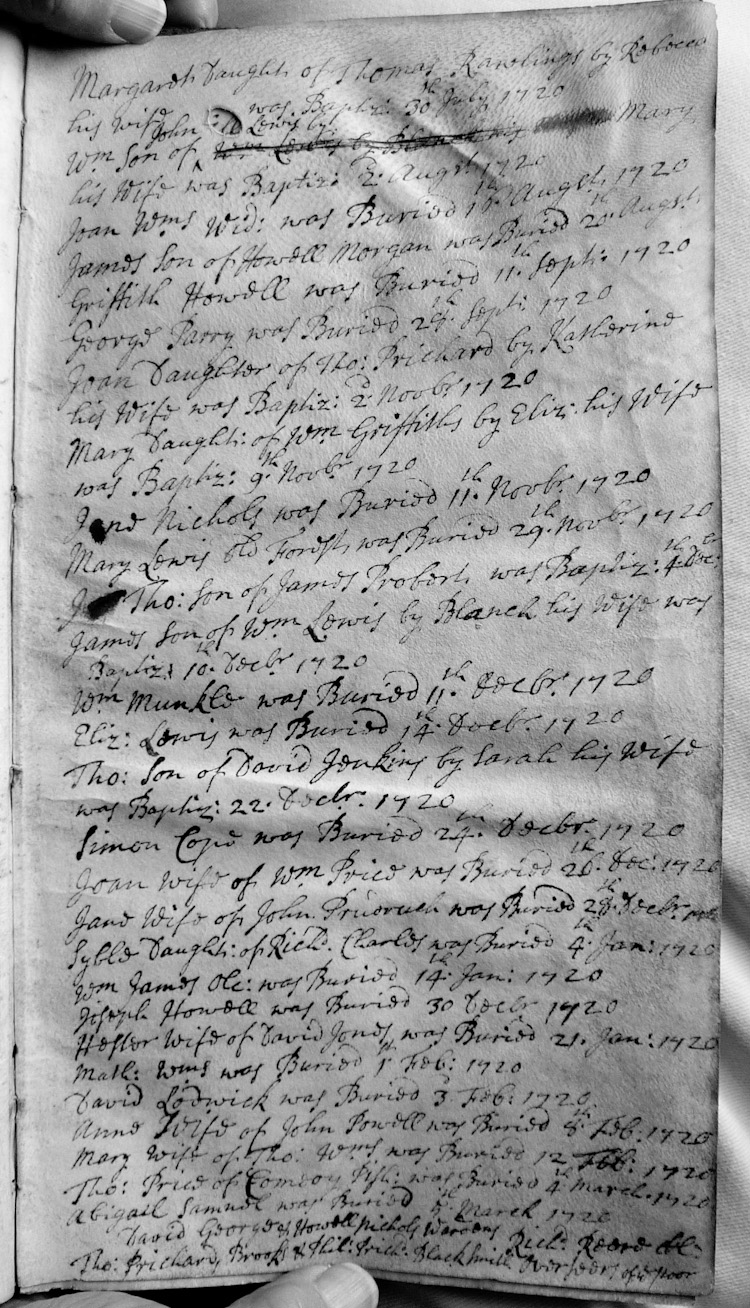 Margarett Daught: of Thomas Rawlings by Rebecca
his Wife was Baptiz: 30th July 1720
John Lewis by
Wm Son of Wm Lewis by Blanch his Mary
his Wife was Baptiz: 2d Augst 1720
Joan Wms Wid: was Buried Augst 1720
James Son of Howell Morgan was Buried 20th Augst
Griffith Howell was Buried 11th Septr: 1720
George Parry was Buried Septr: 1720
Joan Daughter of Tho: Prichard by Katherine
his Wife was Baptiz: 2d Novbr 1720
Mary Daught: of Wm Griffiths by Eliz: his Wife
was Baptiz: 9th Novbr 1720
Jane Nichols was Buried 11th Novbr 1720
Mary Lewis old Forest was Buried 29th Novbr 1720
Tho: Son of James Probert was Baptiz: 4th Dec:
James Son of Wm Lewis by Blanch his Wife was
Baptiz: 10th Decbr 1720
Wm Munkle was Buried 11th Decbr 1720
Eliz: Lewis was Buried 14th Decbr 1720
Tho: Son of David Jenkins by Sarah his Wife
was Baptiz: 22 Decbr 1720
Simon Cope was Buried 24th Decbr 1720
Joan Wife of Wm Price was Buried 26th Dec: 1720
Jane Wife of John was Buried 28th Decbr
Syble Daught: of Rich: Charles was Buried 4th Jan: 1720
Wm James was Buried 14th Jan: 1720
Joseph Howell was Buried 30 Decbr 1720
Hester Wife of David Jones was Buried 21 Jan: 1720
Math: Wms was Buried 1st Feb: 1720
David Lodwick was Buried 3 Feb: 1720
Anne Wife of John Powell was Buried 8th Feb: 1720
Mary Wife of Tho: Wms was Buried 12 Feb: 1720
Tho: Price of was Buried 4th March 1720
Abigail Samuel was Buried March 1720
David George & Howell Nichols Wardens Rich: Reece
Tho: Prichard Brooks & Phil: Blacksmith Overseers of ye poor